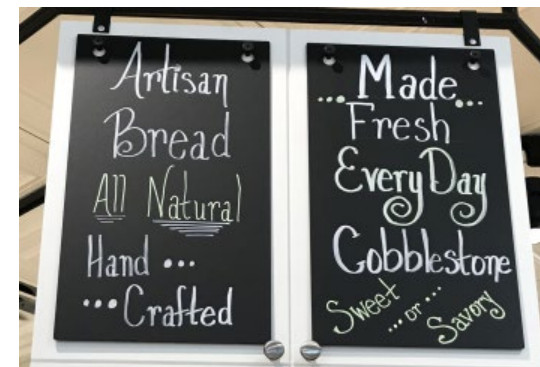 Artisan
Bread
All Natural
Hand ...
... Crafted
... Made ...
Fresh
Every Day
Cobblestone
Sweet
... or ...
Savory